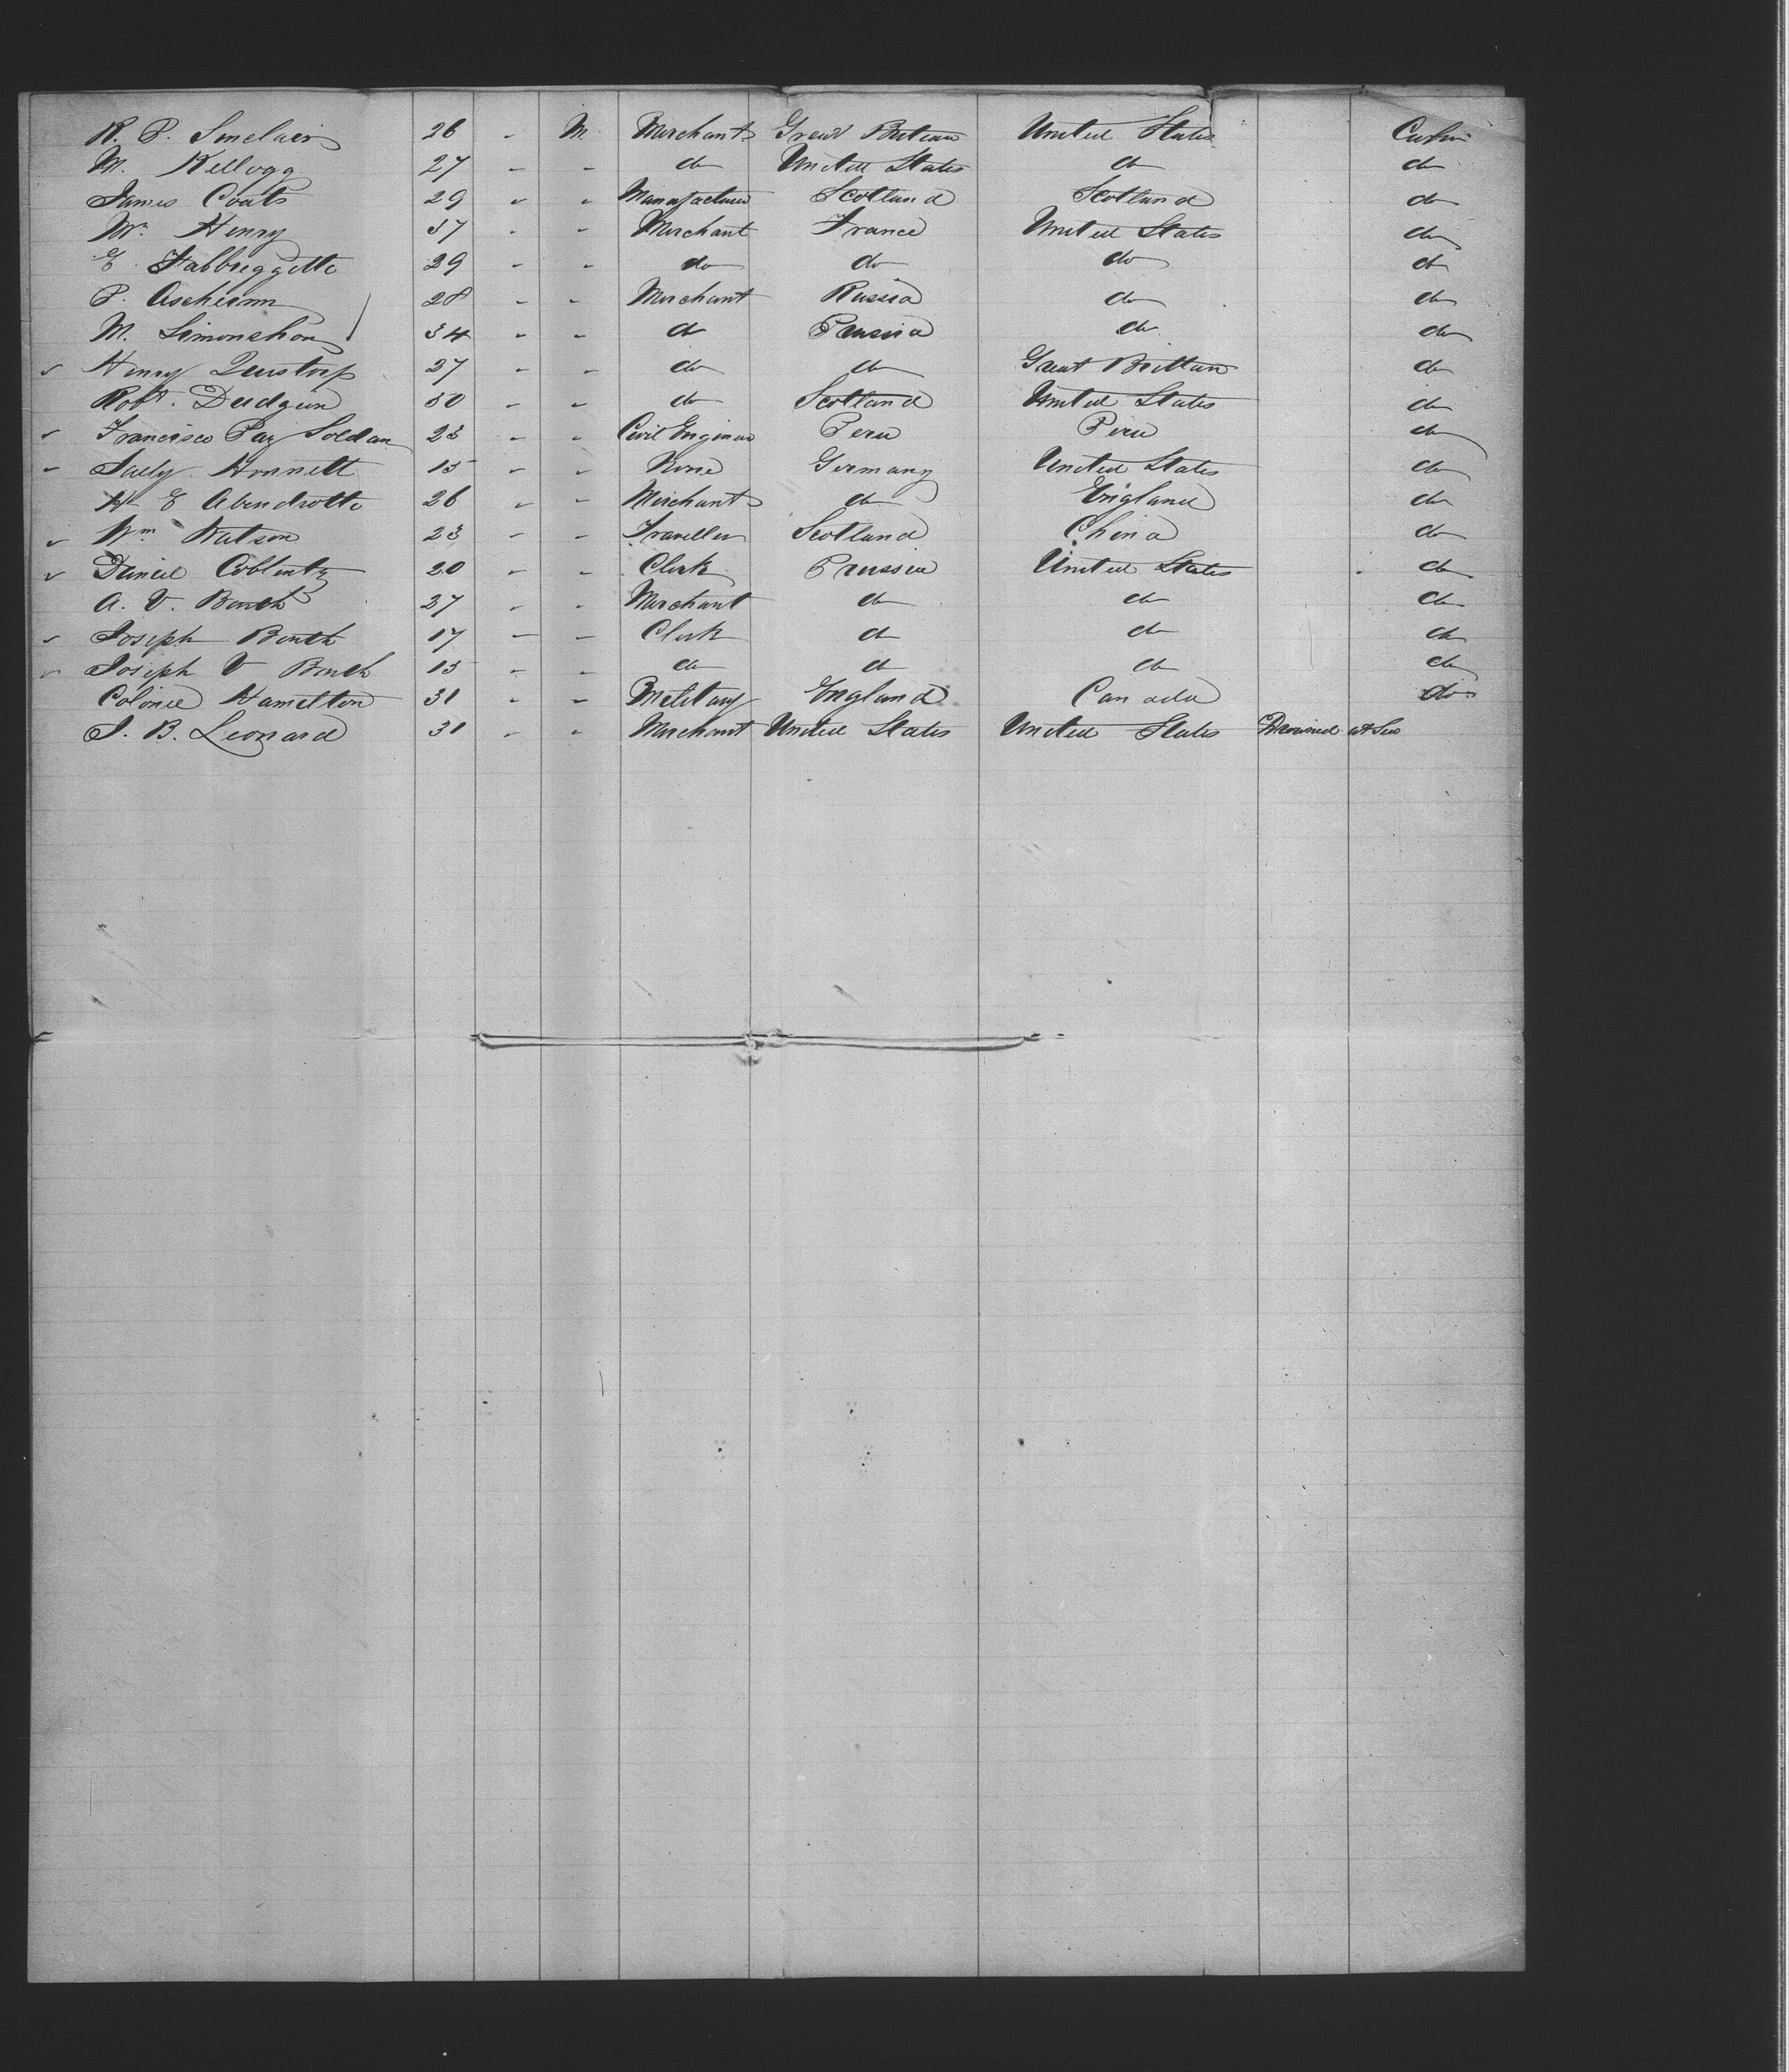 R. P. Sinclair 26 - M. Merchant Great Britain United States Cabin
M. Kellogg 27 - - do United States do do
James Coats 29 - - Manufacturer Scotland Scotland do
Mr. Henry 37 - - Merchant France United States do
E. 29 - - do do do do
P. Ascheim 28 - - Merchant Russia do do
M. Simonshon 34 - - do Prussia do do
Henry 27 - - do do Great Brittan do
Robt. Dudgeon 50 - - do Scotland United States do
Francisco Paz Soldan 23 - - Civil Engineer Peru Peru do
Sally 15 - - None Germany United States do
E Abendroth 26 - - Merchant do England do
Wm Watson 23 - - Traveller Scotland China do
Daniel Coblentz 20 - - Clerk Prussia United States do
A. V. 37 - - Merchant do do do
Joseph 17 - - Clerk do do do
Joseph V 15 - - do do do do
Colonel Hamilton 31 - - Military England Canada do
J. B. Leonard 31 - - Merchant United States United States Drowned at Sea